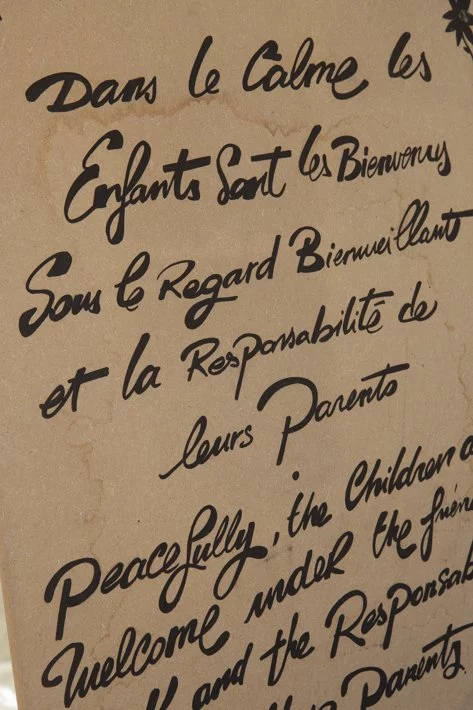 Dans le Calme les
Enfants Sont les Bienvenus
Sous le Regard Bienveillant
et la Responsabilité de
leurs Parents
.
Peacefully, the Children a
Welcome under the frien
and the Responsab
Parents